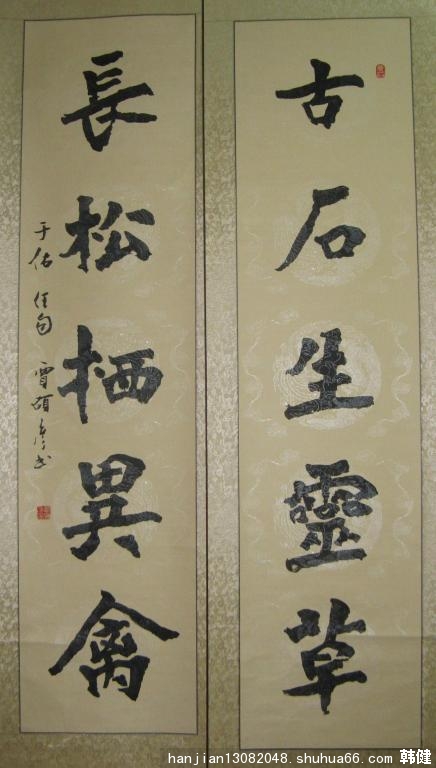 古石生靈草
長松栖異禽
于佑任句
hanjian13082048. shuhua66. com 韩健